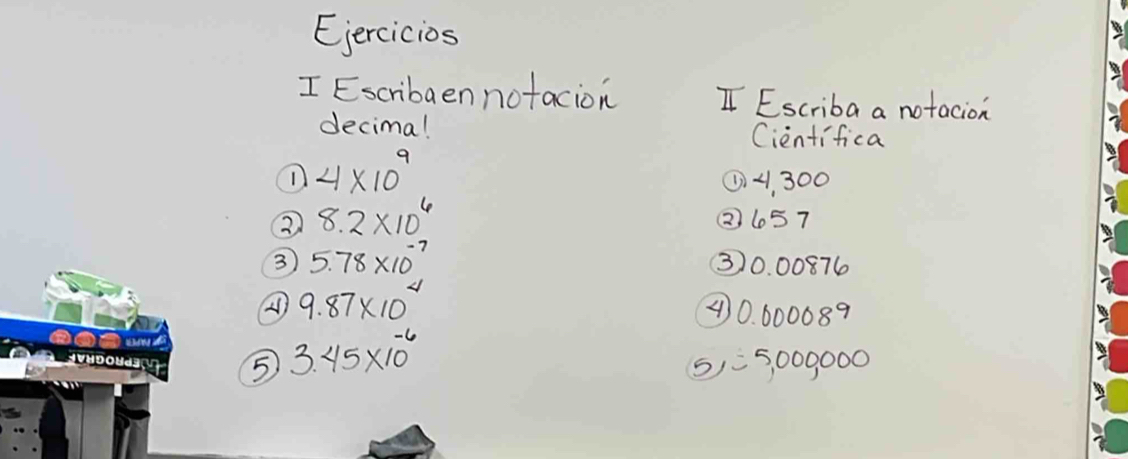 Ejercicios
I Escriba en notación
decimal
① 4 X 10⁹
② 8.2 X 10⁶
③ 5.78 X 10⁻⁷
④ 9.87 X 10⁴
⑤ 3.45 X 10⁻⁶
II Escriba a notación
Científica
① 4,300
② 657
③ 0.00876
④ 0.000089
⑤ 5,000,000
PAPER
REPROGRAF